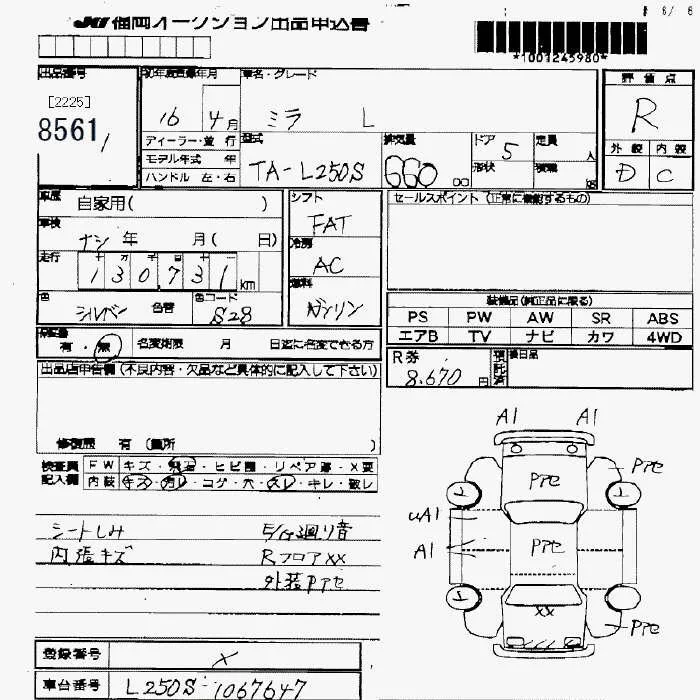 JU 福岡オークション出品申込書
*1001245980*
出品番号
[2225]
8561
初年度登録年月
16 4月
ディーラー・並行
モデル年式 年
ハンドル 左・右
車名・グレード
ミラ L
型式
TA-L250S
排気量
660 cc
ドア 5
形状
定員 人
積載 kg
評価点
R
外装 内装
D C
車歴
自家用( )
車検
ナシ 年 月( 日)
走行
十 万 千 百 十 一
130731 km
色
シルバー
色替
色コード
S28
シフト
FAT
冷房
AC
燃料
ガソリン
セールスポイント (正常に機能するもの)
装備品(純正品に限る)
PS PW AW SR ABS
エアB TV ナビ カワ 4WD
保証書
有・無
名変期限 月 日迄に名変できる方
R券
8.670円
預託済
後日品
出品店申告欄(不良内容・欠品など具体的に記入して下さい)
修復歴 有 (箇所 )
検査員
記入欄
FW キズ・飛石・ヒビ割・リペア済・X要
内装 キズ・汚レ・コゲ・穴・スレ・キレ・破レ
シートしみ
内張キズ
E/G廻り音
Rフロアxx
外装Pアセ
A1 A1
Pアセ
Pアセ
uA1
A1
Pアセ
xx
Pアセ
登録番号
x
車台番号
L250S-1067647